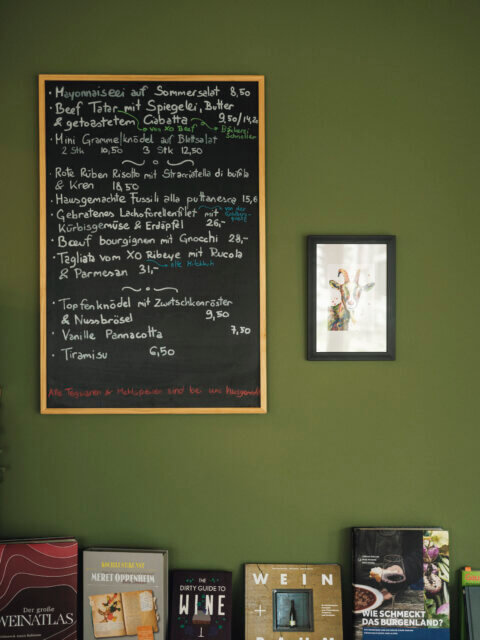 · Mayonnaiseei auf Sommersalat 8,50
· Beef Tatar mit Spiegelei, Butter
& getoastetem Cabatta 9,50/14,20
von XO Beef Bäckerei Schneller
· Mini Grammelknödel auf Blattsalat
2 Stk 10,50 3 Stk 12,50
· Rote Rüben Risotto mit Stracciatella di bufala
& Kren 18,50
· Hausgemachte Fussili alla puttanesca 15,6
· Gebratenes Lachsforellenfilet mit von der
Kürbisgemüse & Erdäpfel 26,-
· Bœuf bourgignon mit Gnocchi 28,-
· Tagliata vom XO Ribeye mit Rucola
& Parmesan 31,- alte Milchkuh
· Topfenknödel mit Zwetschkenröster
& Nussbrösel 9,50
· Vanille Pannacotta 7,50
· Tiramisu 6,50
Alle Teigwaren & Mehlspeisen sind bei uns hausgemacht
Der große
WEINATLAS
MERET OPPENHEIM
THE
DIRTY GUIDE TO
WINE
WEIN
+
RAUM
WIE SCHMECKT
DAS BURGENLAND?